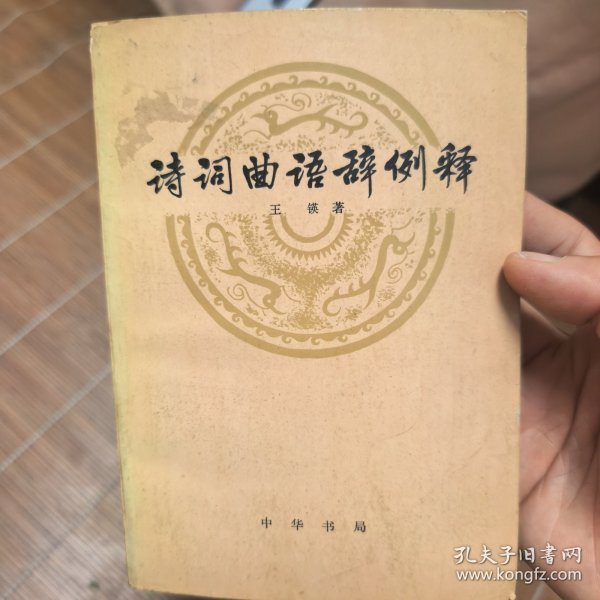 诗词曲语辞例释
王锳著
中华书局
孔夫子旧书网
www.kongfz.com